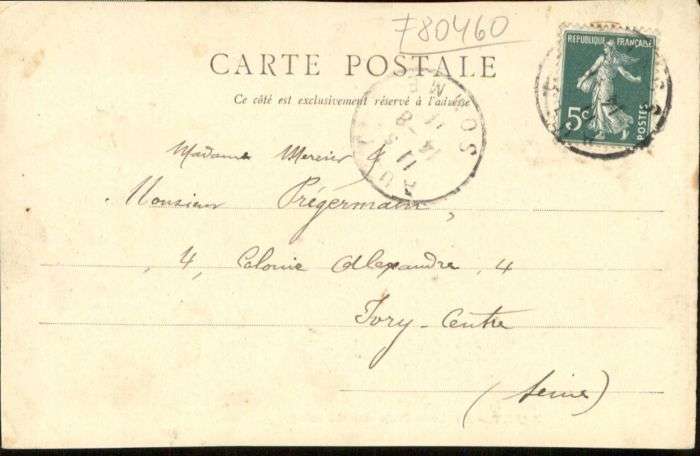 780460
RÉPUBLIQUE FRANÇAISE
5c
POSTES
CARTE POSTALE
Ce côté est exclusivement réservé à l'adresse
Madame Mercier &
Monsieur Prégermain,
4, Colonie Alexandre, 4
Ivry-Centre
(Seine)